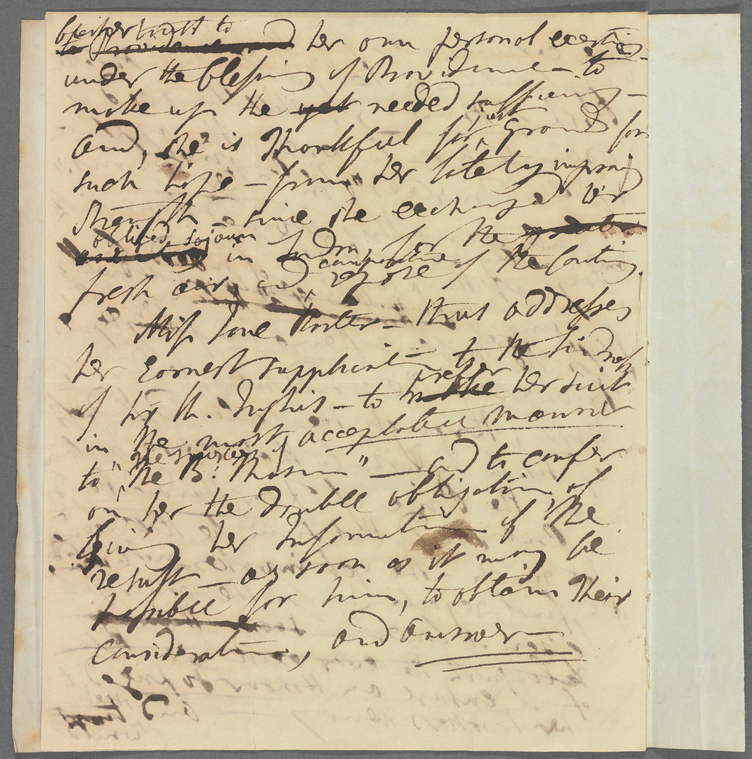 her own personal exertions
under the blessing of Providence – to
make up the yet needed sufficiency –
And, she is thankful for just ground for
such hope – from her lately improving
strength – since she exchanged her
obliged sojourn in London for the
fresh air, and comparative repose of the Country.
Miss Jane Porter – thus addresses
her earnest supplication – to the kindness
of Sir H. Inglis – to refer her suit
in the most acceptable manner
to "the Trustees of the B. Museum" – and to confer
on her the double obligation of
giving her Information of the
result – as soon as it may be
possible for him, to obtain their
consideration, and answer –